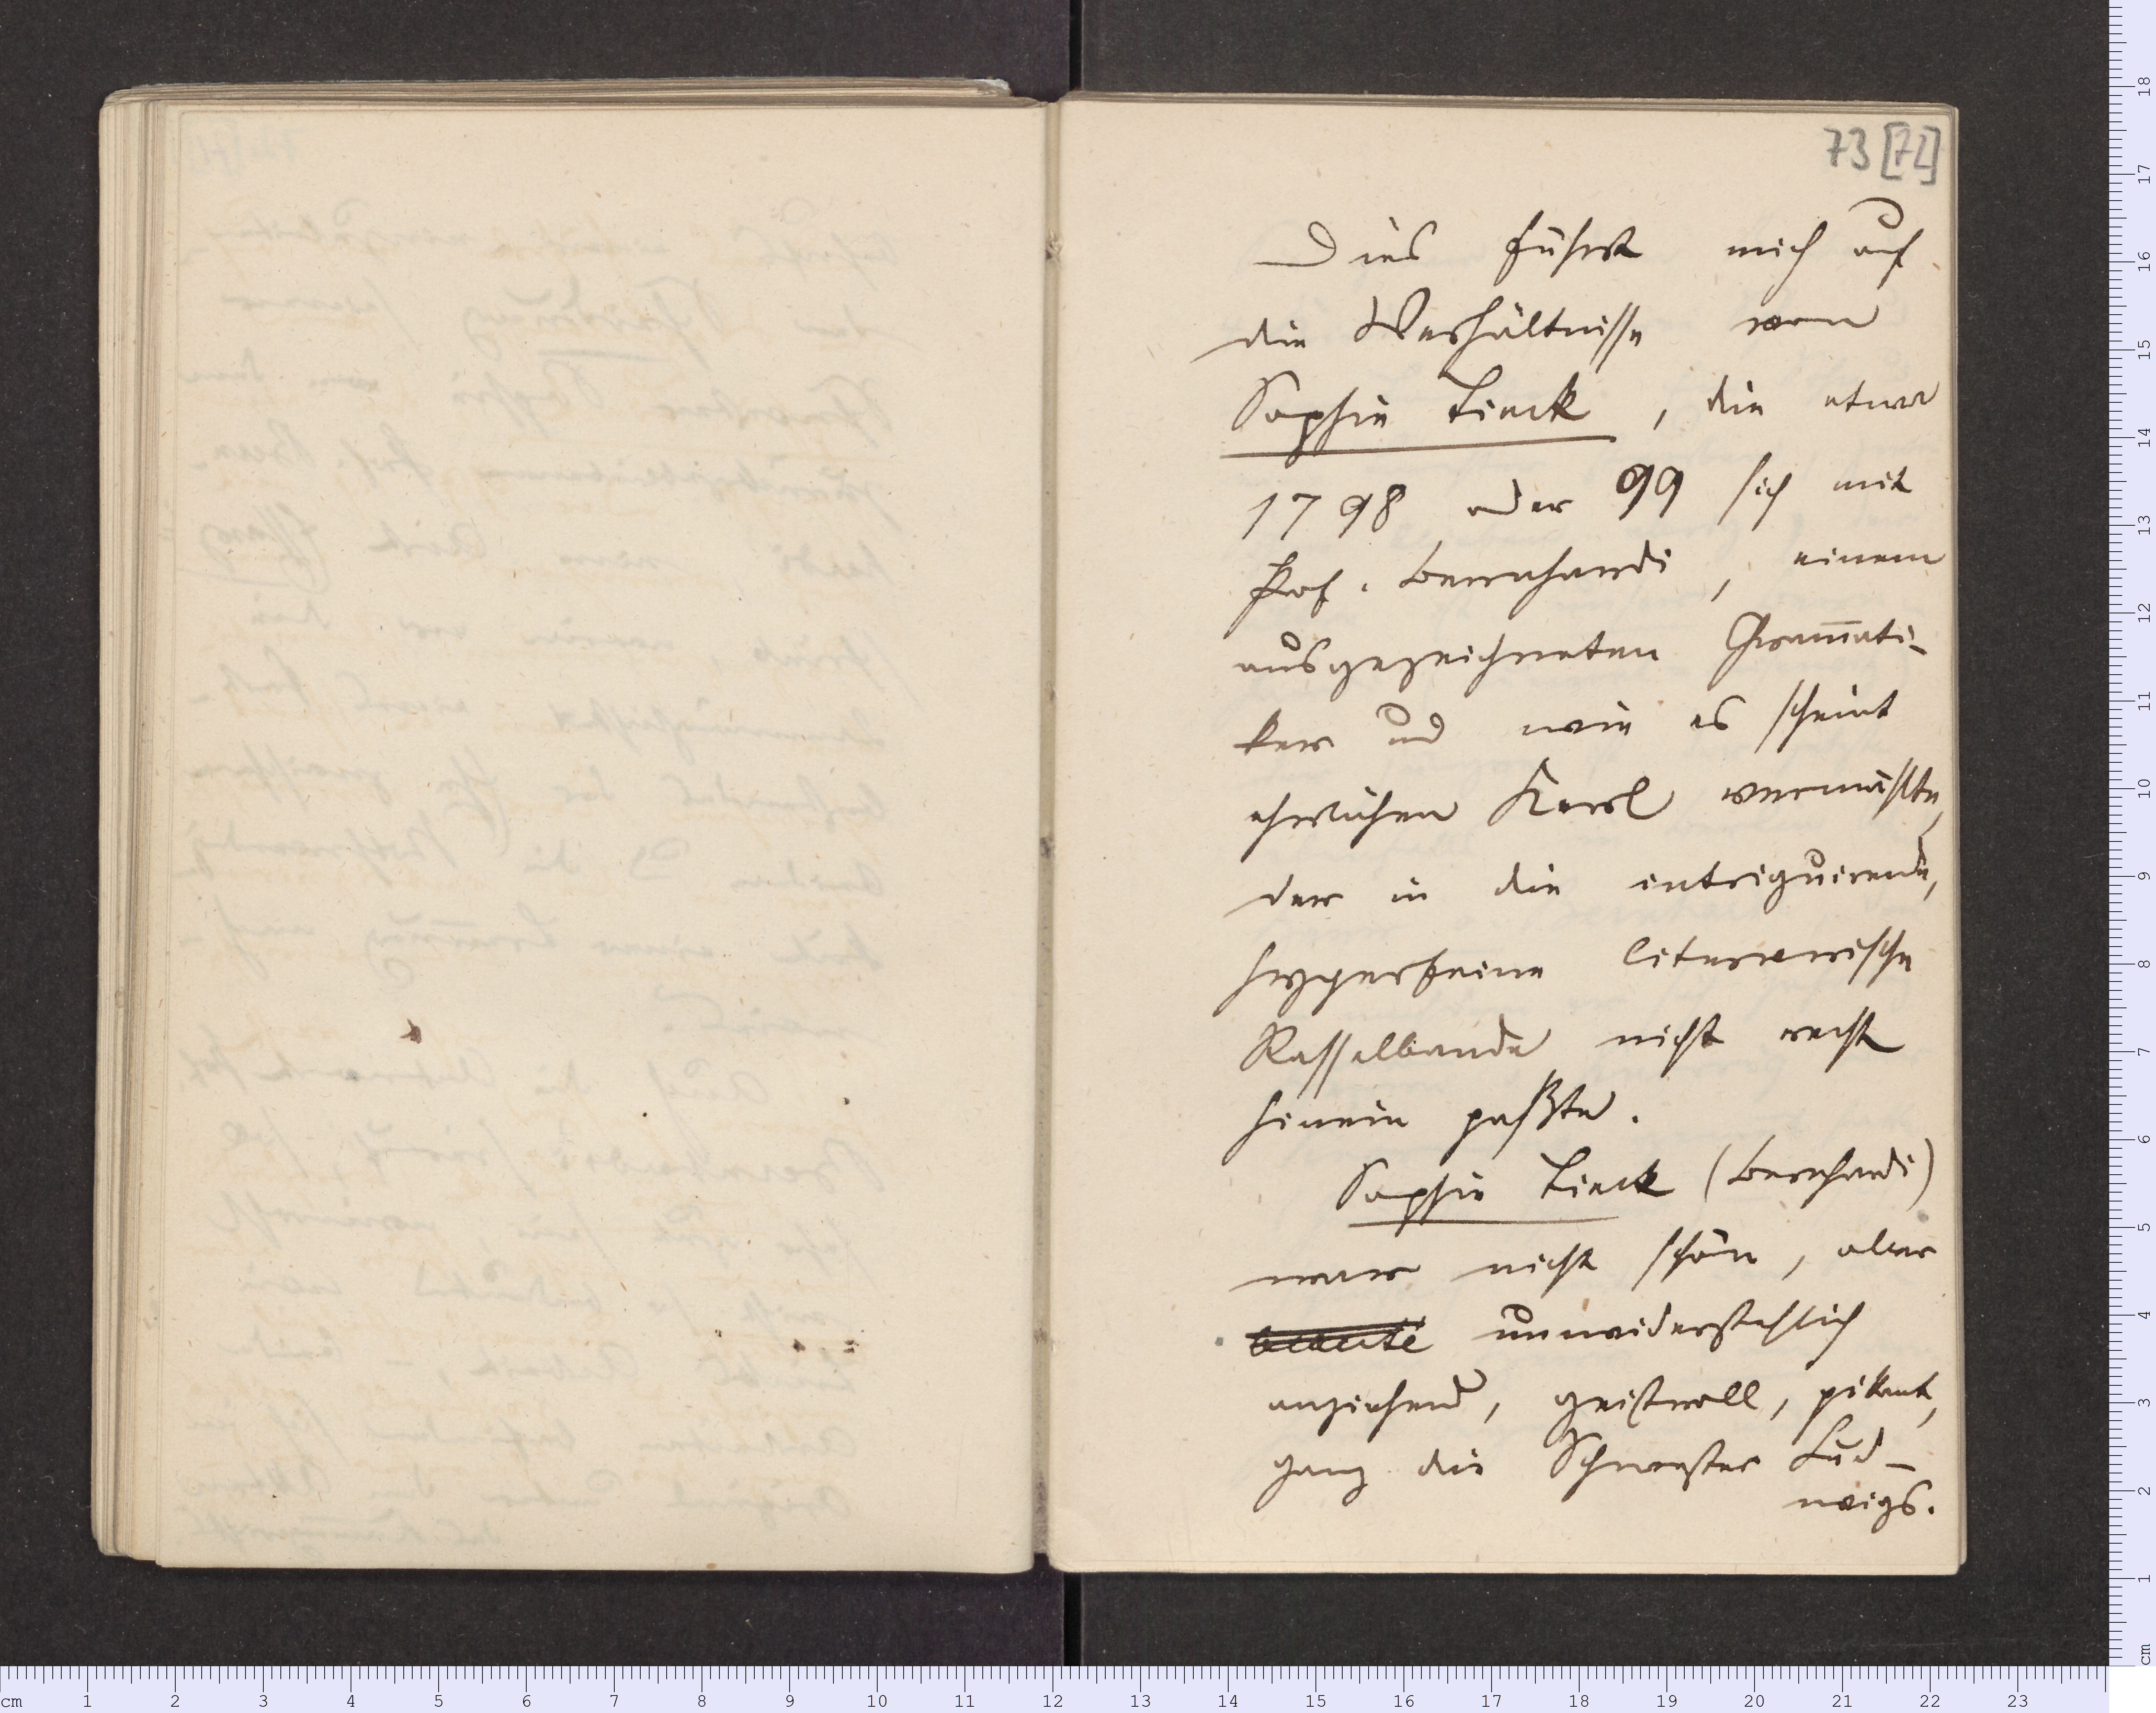 73 [72]
Dies führt mich auf
die Verhältnisse von
Sophie Tieck, die etwa
1798 oder 99 sich mit
Prof. Bernhardi, einem
ausgezeichneten Gram̄ati-
ker und wie es scheint
ehrlichen Kerl vermählte,
der in die intriguirende,
hyperfeine literarische
Rasselbande nicht recht
hinein paßte.
Sophie Tieck (Bernhardi)
war nicht schön, aber
beauté unwiderstehlich
anziehend, geistvoll, pikant,
ganz die Schwester Lud-
wigs.
cm 1 2 3 4 5 6 7 8 9 10 11 12 13 14 15 16 17 18 19 20 21 22 23
cm 1 2 3 4 5 6 7 8 9 10 11 12 13 14 15 16 17 18